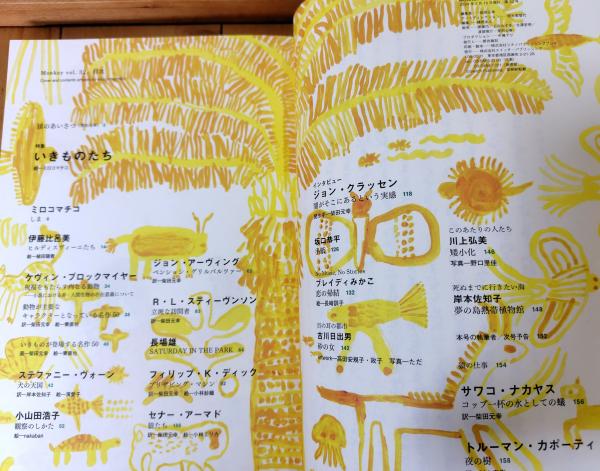 Monkey vol. 32
猿のあいさつ
特集
いきものたち
絵―ミロコマチコ
ミロコマチコ
しま 4
伊藤比呂美
ヒルディスヴィーニたち 14
ケヴィン・ブロックマイヤー
動物が主要な
キャラクターとなっている名作50
いきものが登場する名作50
ステファニー・ヴォーン
犬の天国 42
訳―岸本佐知子 絵―濱愛子
小山田浩子
観察のしかた 52
絵―nakaban
ジョン・アーヴィング
ペンション・グリルパルツァー 62
訳―柴田元幸
R・L・スティーヴンソン
立派な訪問者 83
訳―柴田元幸
長場雄
SATURDAY IN THE PARK
フィリップ・K・ディック
訳―柴田元幸 絵―小林紗織
セナー・アーマド
狼たち 100
訳―柴田元幸
インタビュー
ジョン・クラッセン
闇がそこにあるという実感 118
聞き手―柴田元幸
坂口恭平
126
No Music, No Stories
ブレイディみかこ
恋の帰結 132
絵―長崎訓子
百の耳の都市
古川日出男
砂の女 142
写真―ただ
このあたりの人たち
川上弘美
矮小化 146
写真―野口里佳
死ぬまでに行きたい海
岸本佐知子
夢の島熱帯植物館 148
本号の執筆者 次号予告 152
猿の仕事 154
サワコ・ナカヤス
コップ一杯の水としての蟻 156
訳―柴田元幸
トルーマン・カポーティ
夜の樹 158